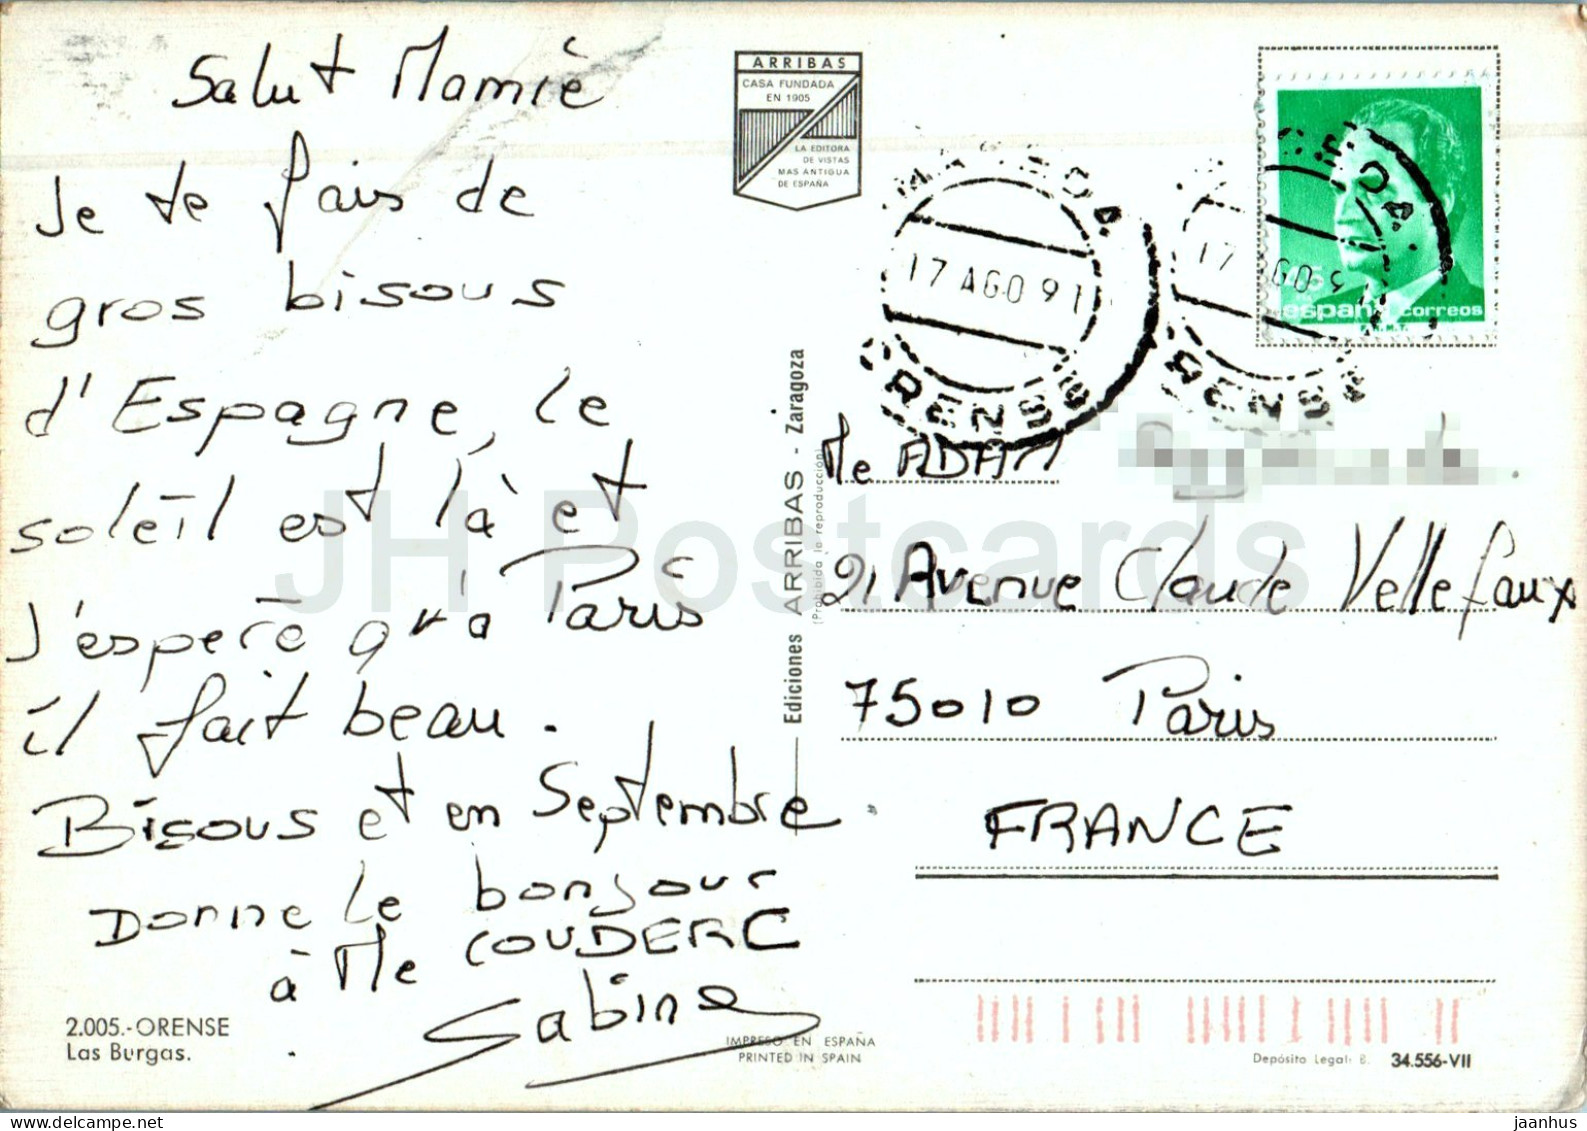 Salut Mamie
Je te fais de
gros bisous
d'Espagne, le
soleil est là et
J'espere qu'a Paris
il fait beau.
Bisous et en Septembre
Donne le bonjour
à Me COUDERC
Sabine
2.005.-ORENSE
Las Burgas.
ARRIBAS
CASA FUNDADA
EN 1905
LA EDITORA
DE VISTAS
MAS ANTIGUA
DE ESPAÑA
Ediciones ARRIBAS - Zaragoza
(Prohibida la reproducción)
IMPRESO EN ESPAÑA
PRINTED IN SPAIN
17 AGO 91
ORENSE
17 AGO 9
ORENSE
España correos
F.N.M.T.
Me ADAM
21 Avenue Claude Vellefaux
75010 Paris
FRANCE
Depósito Legal: B. 34.556-VII
JH Postcards
jaanhus
www.hippostcard.com